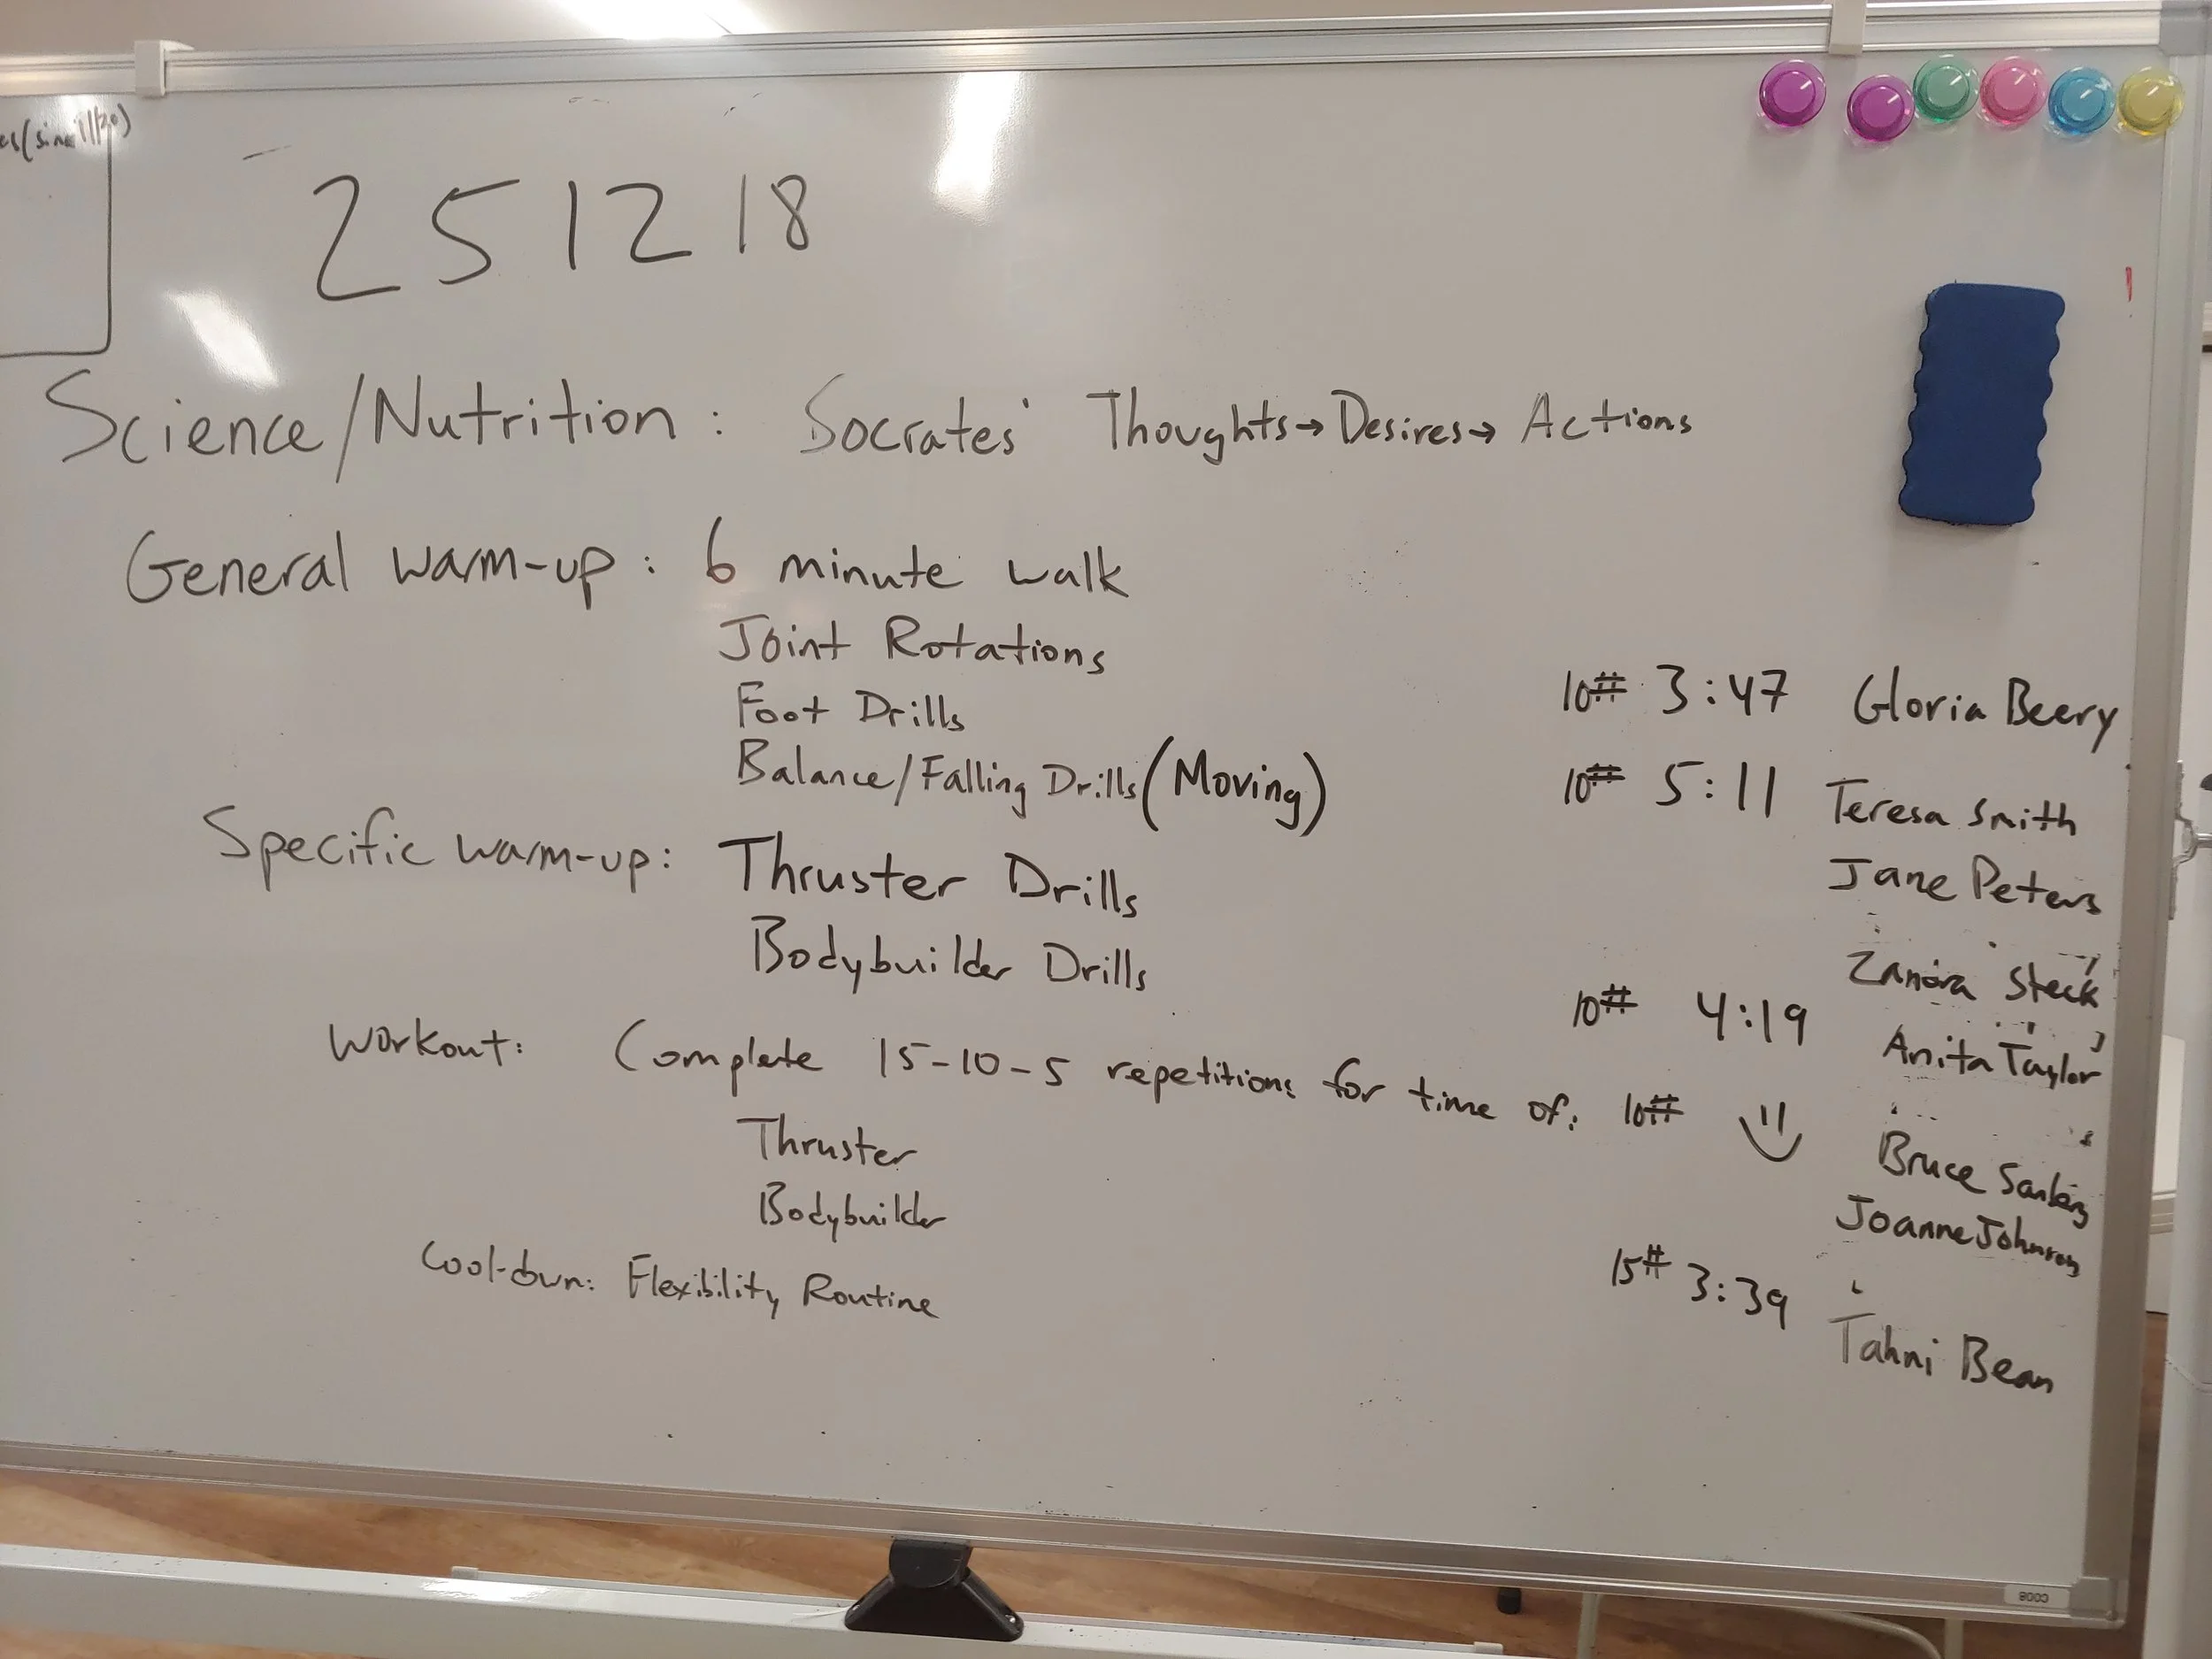 251218
Science/Nutrition: Socrates' Thoughts→Desires→Actions
General warm-up: 6 minute walk
Joint Rotations
Foot Drills
Balance/Falling Drills (Moving)
Specific warm-up: Thruster Drills
Bodybuilder Drills
Workout: Complete 15-10-5 repetitions for time of:
Thruster
Bodybuilder
Cool-down: Flexibility Routine
10# 3:47 Gloria Beery
10# 5:11 Teresa Smith
Jane Peters
Zanora Steck
10# 4:19 Anita Taylor
10# Bruce
Joanne Johnson
15# 3:39 Tahni Bean